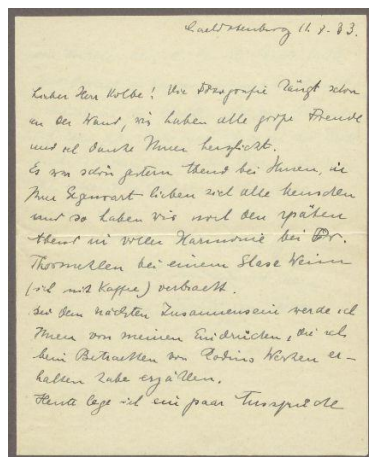 Charlottenburg 11.X.33.
Lieber Herr Kolbe! Die Fotografie hängt schon
an der Wand, wir haben alle große Freude
und ich danke Ihnen herzlichst.
Es war schön gestern Abend bei Ihnen, in
Ihrer Gegenwart lieben sich alle Menschen
und so haben wir noch den späten
Abend in voller Harmonie bei Dr.
Thormaehlen bei einem Glase Wein
(ich mit Kaffee) verbracht.
Bei dem nächsten Zusammensein werde ich
Ihnen von meinen Eindrücken, die ich
beim Betrachten von Rodins Werken er-
halten habe erzählen.
Heute lege ich ein paar